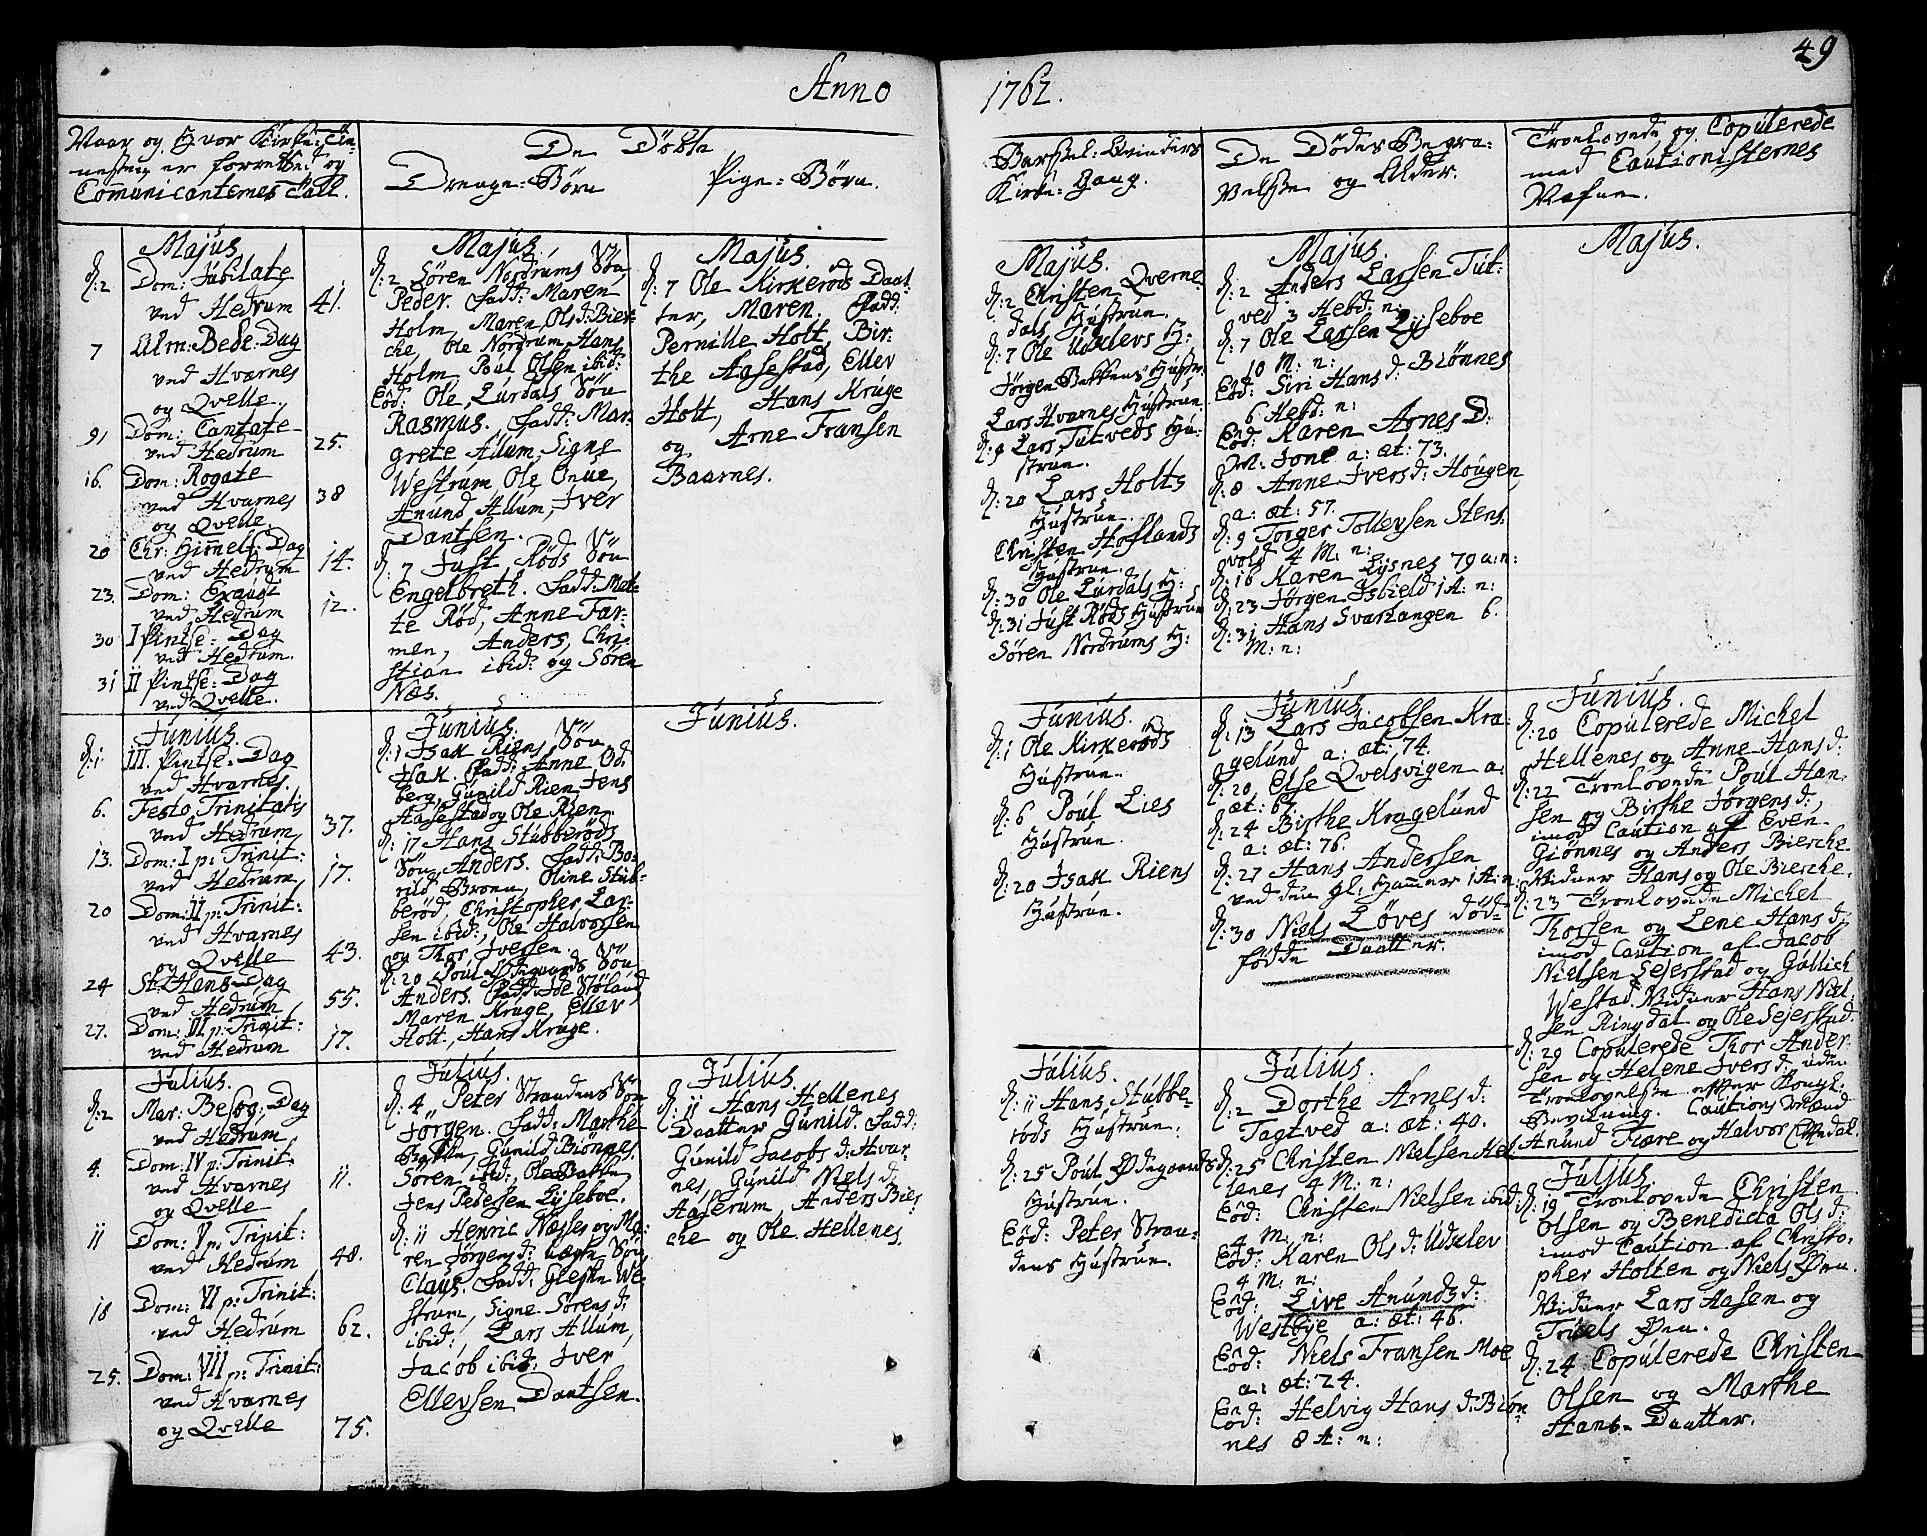 49
Anno
1762.
Naar og Hvor Kirke-Tie-
nesten er forretted og
Comunicanternes Tall.
De Döbte
Drenge-Börn
Pige-Börn.
Barsel-Qvinders
Kirke-Gang.
De Dödes Begra-
velse og Alder.
Trolovede og Copulerede
med Cautionisternes
Nafne.
Majus.
d: 2 Dom: Jubilate
ved Hedrum 41.
7 Alm: Bede-Dag
ved Hvarnes
og Qvelle.
9 Dom: Cantate
ved Hedrum 25.
16. Dom: Rogate
ved Hvarnes 38
og Qvelle.
20 Chr: Himelf: Dag
ved Hedrum 14.
23. Dom: Exaudi
ved Hedrum 12.
30 I Pintse-Dag
ved Hedrum.
31 II Pintse-Dag
ved Qvelle.
Majus.
d: 2 Sören Nordrums Sön
Peder. Fadd: Maren
Holm, Maren Olsd: Bier-
che, Ole Nordrum, Hans
Holm, Poul Olsen ibid:
Eod: Ole Lurdals Sön
Rasmus. Fadd: Mar-
grete Allum, Signe
Westrum, Ole Onue,
Anund Allum, Iver
Dantsen.
d: 7 Just Röds Sön
Engelbreth. Fadd: Met-
te Röd, Anne Far-
men, Anders, Chri-
stian ibid: og Sören
Næs.
Majus.
d: 7 Ole Kirkeröds Daat-
ter, Maren. Fadd:
Pernille Holt, Bir-
the Aasestad, Ellev
Holt, Hans Kruge
og Arne Fransen
Baarnes.
Majus.
d: 2 Christen Qverne-
dals Hustrue.
d: 7 Ole Udklevs H:
Jörgen Bekkens Hustr:
Lars Hvarnes Hustrue.
d: 9 Lars Tutveds Hu-
strue.
d: 20 Lars Holts
Hustrue.
Christen Hoflands
Hustrue.
d: 30 Ole Lurdals H:
d: 31 Just Röds Hustrue
Sören Nordrums H:
Majus.
d: 2 Anders Larsen Tut-
ved 3 Hebd: n:
d: 7 Ole Larsen Lyseboe
10 M: n:
Eod: Siri Hansd: Biönnes
6 Hebd: n:
Eod: Karen Arnes D:
Jone a: æt: 73.
d: 8 Anne Iversd: Hougen
a: æt: 57.
d: 9 Torger Tollevsen Stens-
vold 4 M: n:
d: 16 Karen Lysnes 79 a: n:
d: 23 Jörgen Isbield 1 A: n:
d: 31 Hans Svartangen 6.
M: n:
Majus.
Junius.
d: 1 III. Pintse-Dag
ved Hvarnes.
6. Festo Trinitatis
ved Hedrum 37.
13. Dom: I p: Trinit:
ved Hedrum 17.
20 Dom: II p: Trinit:
ved Hvarnes
og Qvelle 43.
24 St: Hans-Dag
ved Hedrum 55.
27. Dom: III p: Trinit:
ved Hedrum 17.
Junius.
d: 1 Isak Riens Sön
Isak. Fadd: Anne Od-
berg, Gunild Rien, Jens
Aasestad og Ole Rien.
d: 17 Hans Stubberöds
Sön Anders. Fadd: Bo-
rild Broen, Oline Stub-
beröd, Christopher Lar-
sen ibid:, Ole Halvorsen
og Thor Iversen.
d: 20 Poul Ödegaards Sön
Anders. Fadd: Joe Möland
Maren Kruge, Ellev
Holt, Hans Kruge.
Junius.
Junius.
d: 1 Ole Kirkeröds
Hustrue.
d: 6 Poul Lies
Hustrue.
d: 20 Isak Riens
Hustrue.
Junius.
d: 13 Lars Jacobsen Kra-
gelund a: æt: 74.
d: 20 Else Qvelsvigen a:
æt: 67.
d: 24 Birthe Kragelund
a: æt: 76.
d: 27 Hans Andersen
ved den gl: Hammer 1 A: n:
d: 30 Niels Löves död-
födde Daatter.
Junius.
d: 20 Copulerede Michel
Hellenes og Anne Hansd:
d: 22 Trolovede Poul Han-
sen og Birthe Jörgensd:,
imod Caution af Even
Giönnes og Anders Bierche
Vidner Hans og Ole Bierche.
d: 23 Trolovede Michel
Thorsen og Lene Hansd:
imod Caution af Jacob
Nielsen Sejerstad og Gullich
Westad, Vidner Hans Niel-
sen Ringdal og Ole Sejerstad.
d: 29 Copulerede Thor Ander-
sen og Helene Iversd: uden
Trolovelse efter Kongl:
Bevilning. Cautions Mænd
Anund Fiære og Halvor Omdal.
Julius.
d: 2 Mar: Besög: Dag
ved Hedrum
4. Dom: IV p: Trinit:
ved Hvarnes 11.
og Qvelle
11 Dom: V p: Trinit:
ved Hedrum 48.
18 Dom: VI p: Trinit:
ved Hedrum 62.
25. Dom: VII p: Trinit:
ved Hvarnes
og Qvelle 75.
Julius.
d: 4 Peter Strandens Sön
Jörgen. Fadd: Marthe
Bakke, Gunild Biönnes,
Sören ibid:, Ole Bakke,
Jens Pedersen Lyseboe.
d: 11 Henric Næsses og Ma-
ren Jörgensd: uægte Sön
Claus. Fadd: Giertke We-
strum, Signe Sörensd:
ibid: Lars Allum,
Jacob ibid: Iver
Ellevsen Dantsen.
Julius.
d: 11 Hans Hellenes
Daatter Gunild. Fadd:
Gunild Jacobsd: Hvar-
nes, Gunild Nielsd:
Aaserum, Anders Bier-
che og Ole Hellenes.
Julius.
d: 11 Hans Stubbe-
röds Hustrue.
d: 25 Poul Ödegaards
Hustrue.
Eod: Peter Stran-
dens Hustrue.
Julius.
d: 2 Dorthe Arnesd:
Tagtved a: æt: 40.
d: 25 Christen Nielsen Hel-
lenes 4 M: n:
Eod: Christen Nielsen ibid:
4 M: n:
Eod: Karen Olsd: Udklev
4 M: n:
Eod: Live Anundsd:
Westbye a: æt: 46.
Eod: Niels Fransen Moe
a: æt: 24.
Eod: Helvig Hansd: Biön-
nes 8 A: n:
Julius.
d: 19 Trolovede Christen
Olsen og Benedicta Olsd:
imod Caution af Christo-
pher Holten og Niels Øen.
Vidner Lars Aasen og
Truels Øen.
d: 24 Copulerede Christen
Olsen og Marthe
Hans-Daatter.